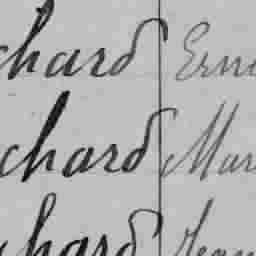 chard Erne
chard Mar
chard Jean